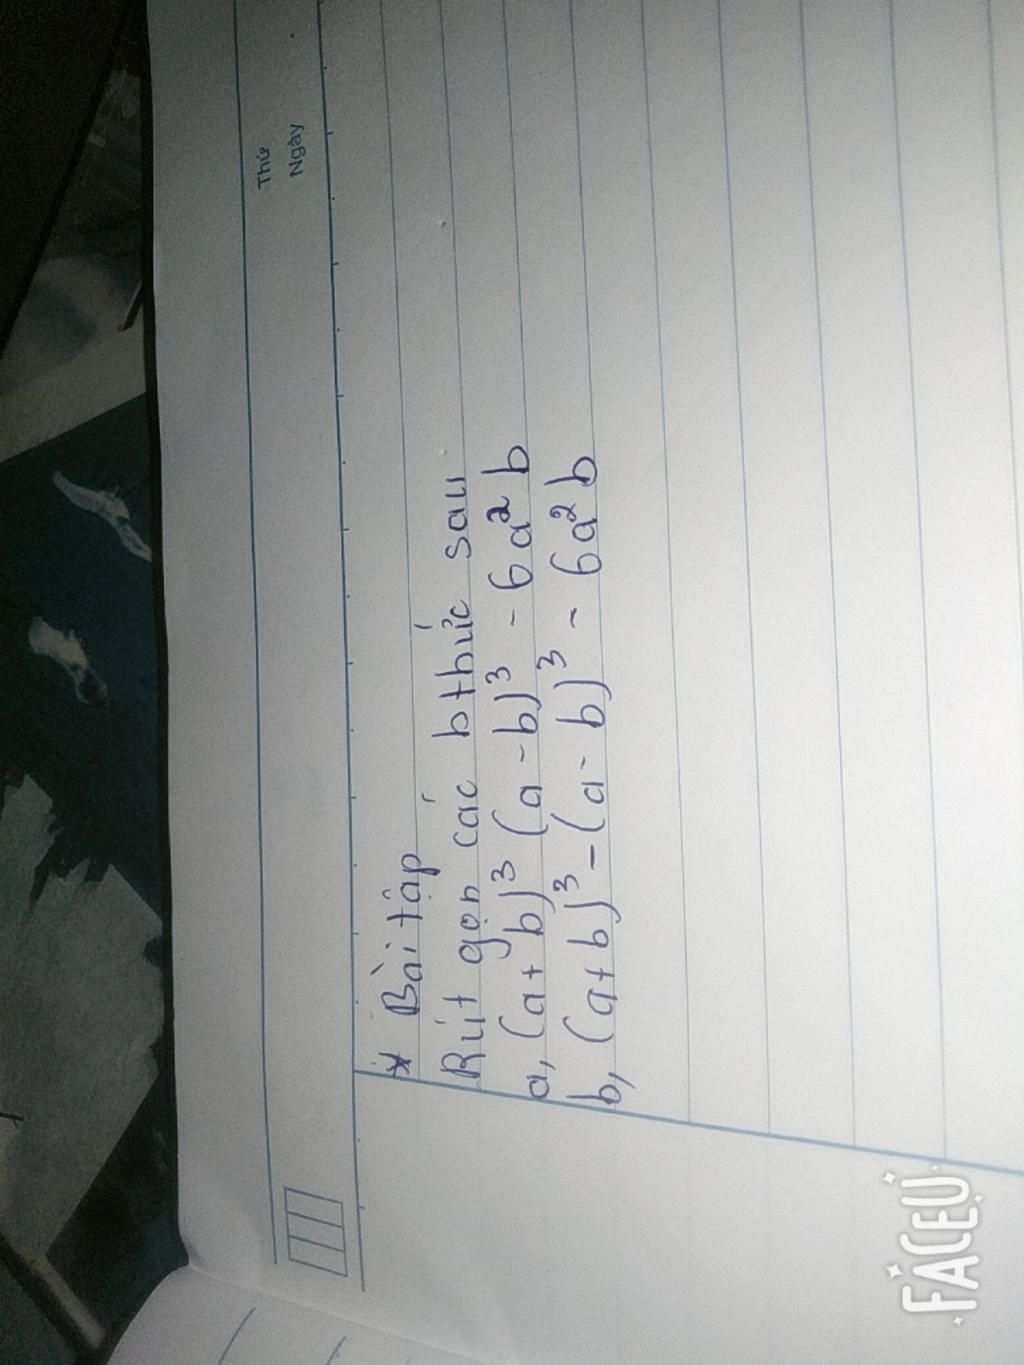 Thứ
Ngày
* Bài tập
Rút gọn các bthức sau
a, (a+b)³ (a-b)³ - 6a²b
b, (a+b)³ - (a-b)³ - 6a²b
FACEU